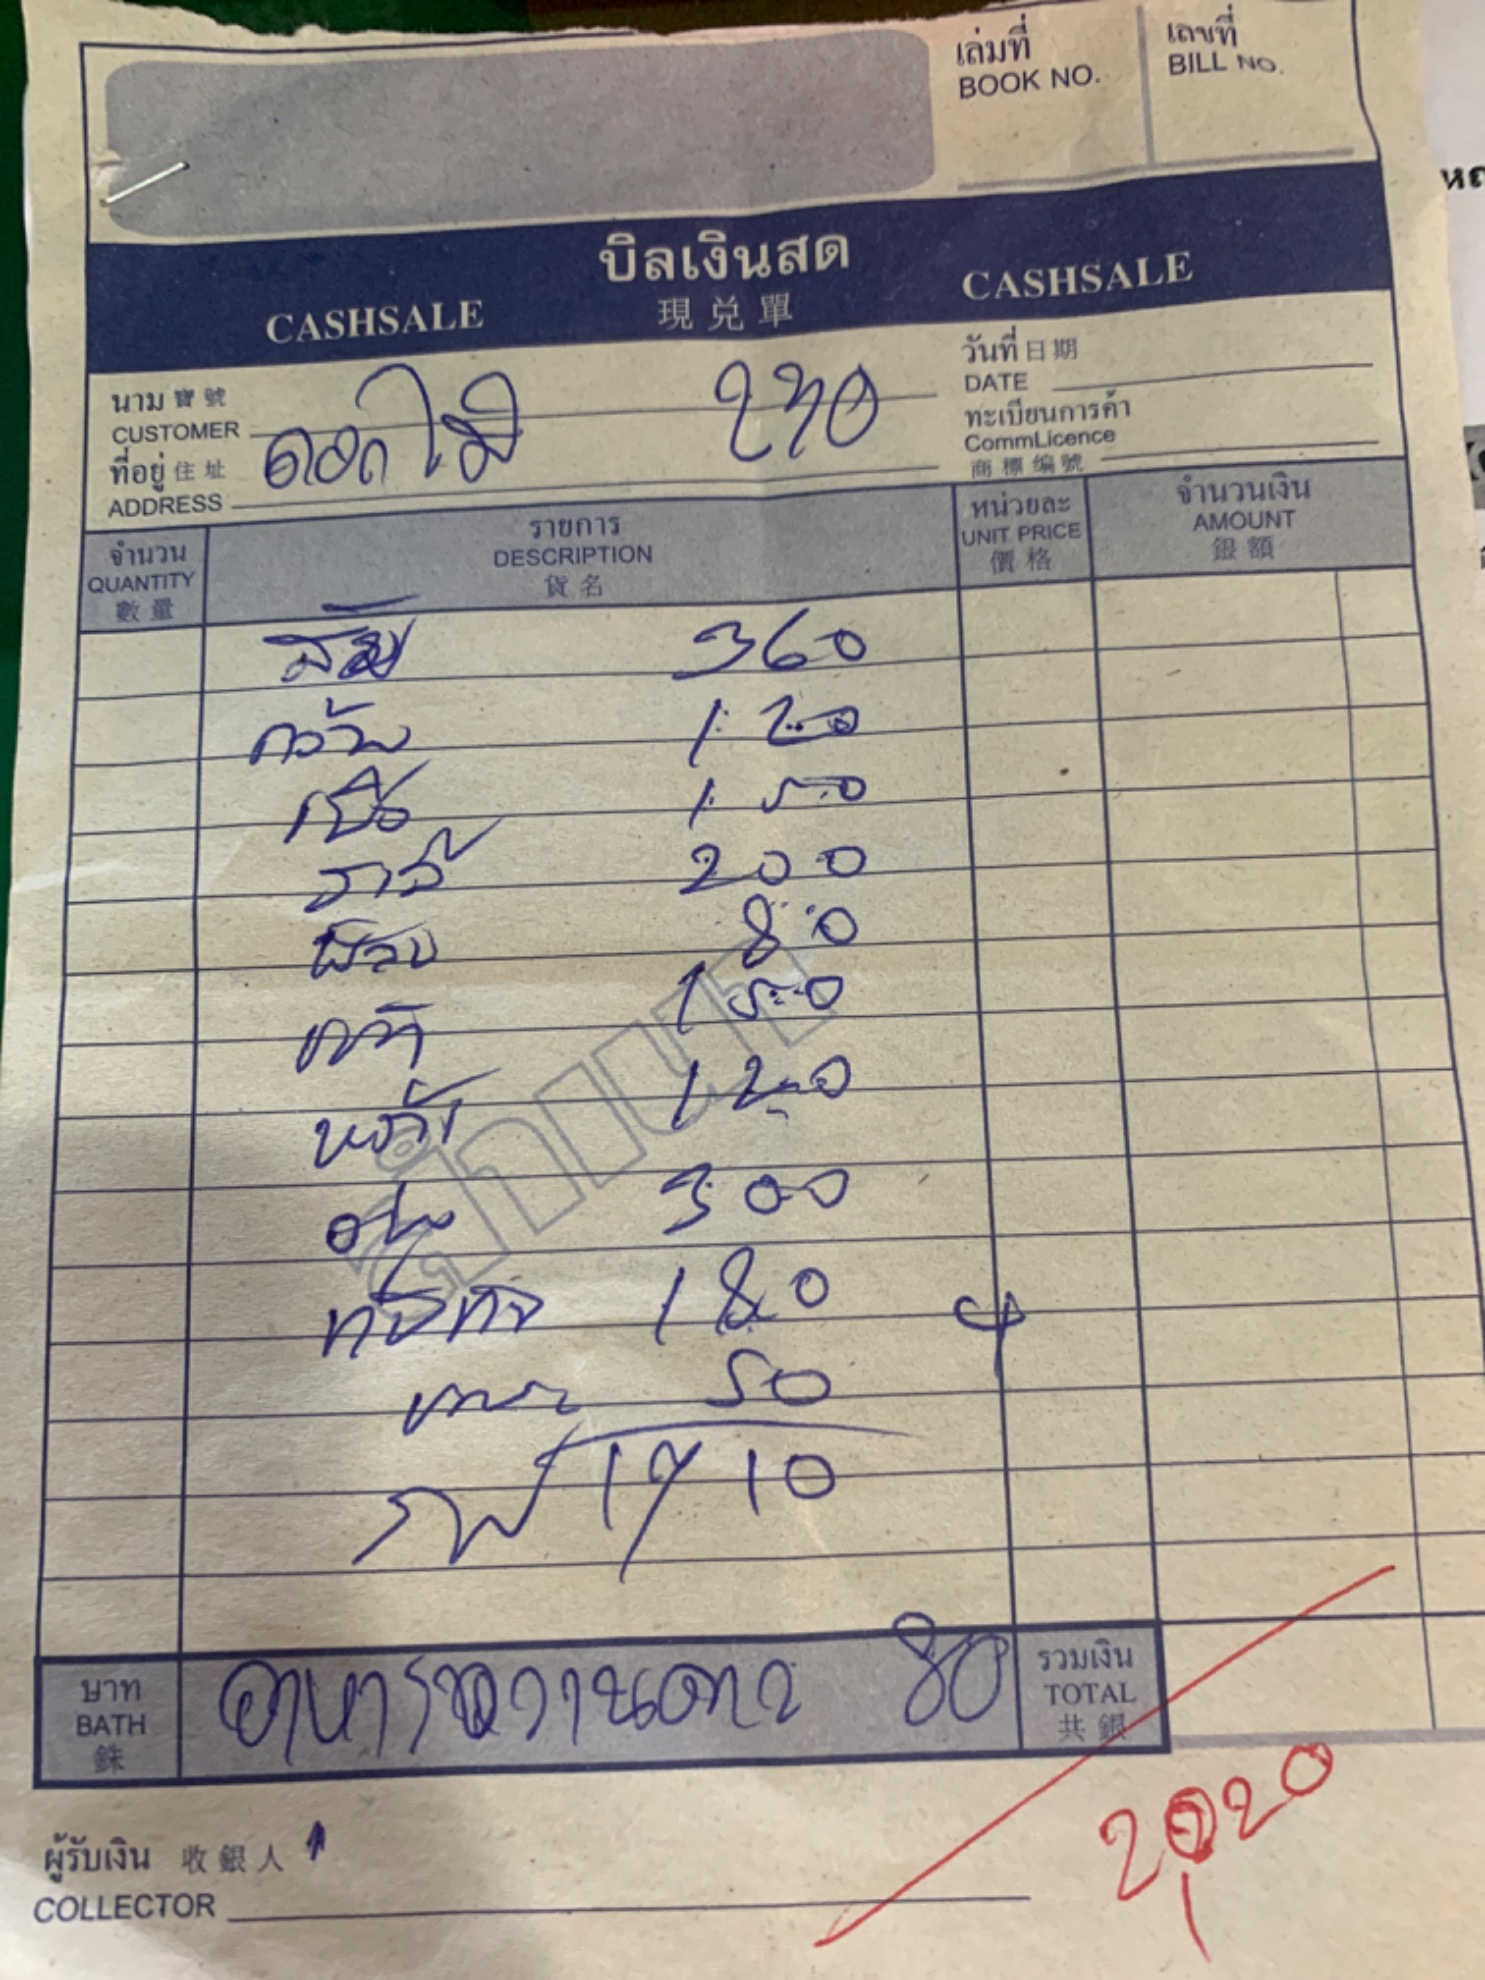 เล่มที่ เลขที่
BOOK NO. BILL NO.
บิลเงินสด
CASHSALE 現兑單 CASHSALE
นาม 寶號 วันที่ 日期
CUSTOMER DATE
ดอกไม้ 230
ที่อยู่ 住址 ทะเบียนการค้า
ADDRESS CommLicence
商標编號
จำนวน รายการ หน่วยละ จำนวนเงิน
QUANTITY DESCRIPTION UNIT PRICE AMOUNT
數量 貨名 價格 銀額
ส้ม 360
กล้วย 120
150
สาลี่ 200
80
150
120
องุ่น 300
180
50
รวม 1710
สำเนา
บาท อาหารหวานคาว 80 รวมเงิน
BATH TOTAL
銖 共銀
2020
ผู้รับเงิน 收銀人
COLLECTOR